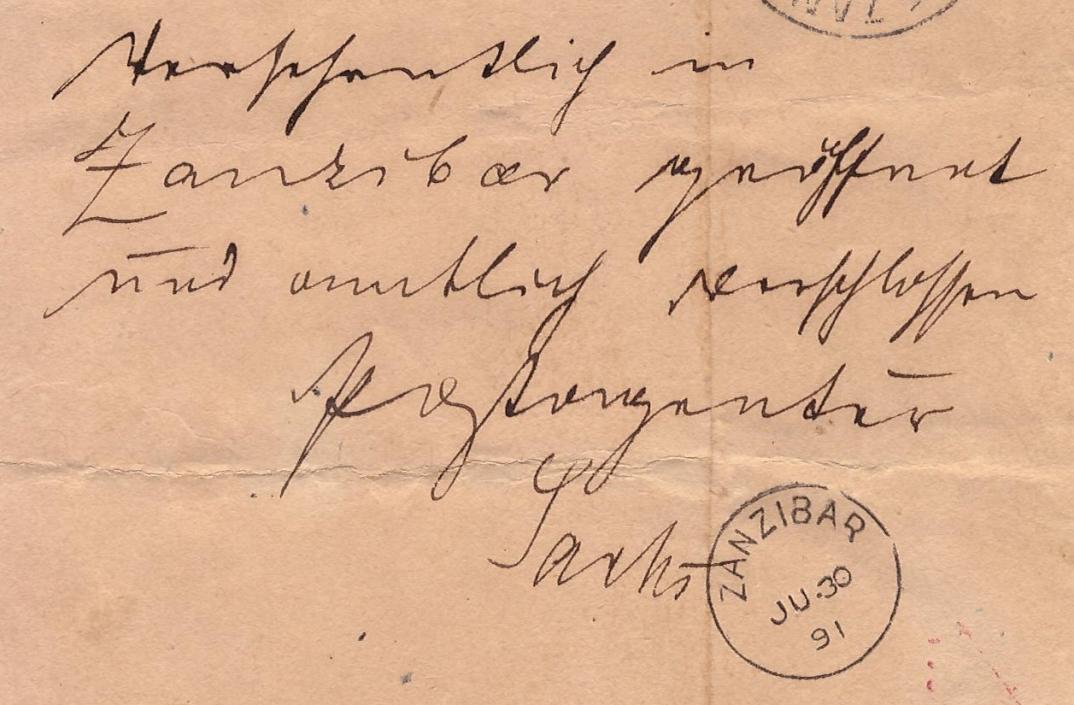 Versehentlich in
Zanzibar geöffnet
und amtlich verschlossen
Postagentur
Sachs
ZANZIBAR
JU·30
91